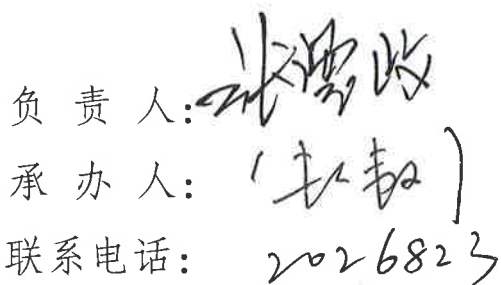 负责人：张
承办人：（
联系电话：2026823